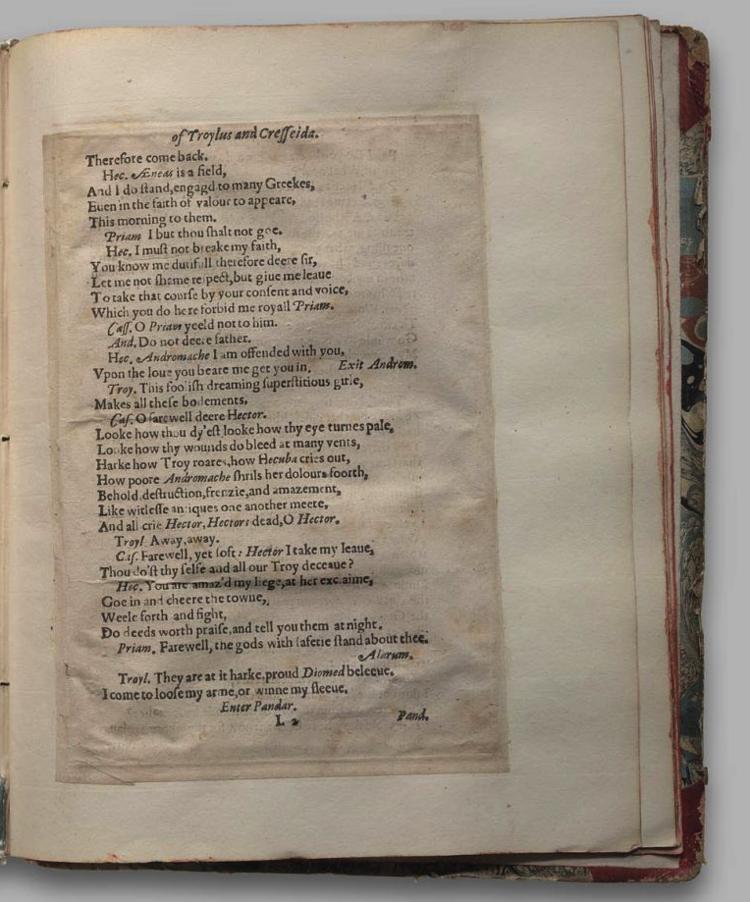 of Troylus and Cresseida.
Therefore come back.
Hec. Æneas is a field,
And I do stand, engagd to many Greekes,
Euen in the faith of valour to appeare,
This morning to them.
Priam I but thou shalt not goe.
Hec. I must not breake my faith,
You know me dutifull therefore deere sir,
Let me not shame respect, but giue me leaue
To take that course by your consent and voice,
Which you do here forbid me royall Priam.
Cass. O Priam yeeld not to him.
And. Do not deere father.
Hec. Andromache I am offended with you,
Vpon the loue you beare me get you in. Exit Androm.
Troy. This foolish dreaming superstitious girle,
Makes all these bodements,
Cas. O farewell deere Hector.
Looke how thou dy'est looke how thy eye turnes pale,
Looke how thy wounds do bleed at many vents,
Harke how Troy roares, how Hecuba cries out,
How poore Andromache shrils her dolours foorth,
Behold destruction, frenzie, and amazement,
Like witlesse antiques one another meete,
And all crie Hector, Hectors dead, O Hector.
Troyl Away, away.
Cas. Farewell, yet soft: Hector I take my leaue,
Thou do'st thy selfe and all our Troy deceaue?
Hec. You are amaz'd my liege, at her exclaime,
Goe in and cheere the towne,
Weele forth and fight,
Do deeds worth praise, and tell you them at night.
Priam. Farewell, the gods with safetie stand about thee.
Alarum.
Troyl. They are at it harke, proud Diomed beleeue.
I come to loose my arme, or winne my sleeue.
Enter Pandar.
L 2 Pand.